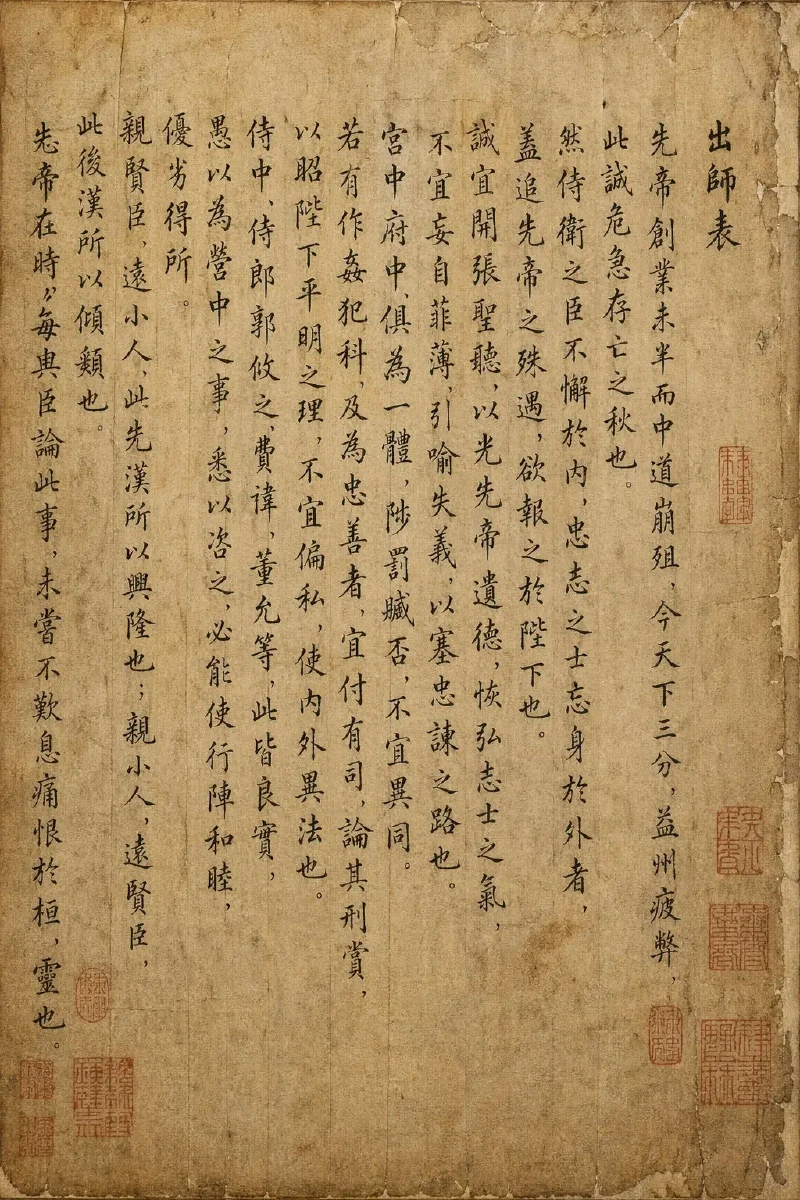 出師表
先帝創業未半而中道崩殂，今天下三分，益州疲弊，
此誠危急存亡之秋也。
然侍衛之臣不懈於內，忠志之士忘身於外者，
蓋追先帝之殊遇，欲報之於陛下也。
誠宜開張聖聽，以光先帝遺德，恢弘志士之氣，
不宜妄自菲薄，引喻失義，以塞忠諫之路也。
宮中府中、俱為一體，陟罰臧否，不宜異同。
若有作姦犯科、及為忠善者，宜付有司，論其刑賞，
以昭陛下平明之理，不宜偏私，使內外異法也。
侍中、侍郎郭攸之、費禕，董允等，此皆良實，
愚以為營中之事，悉以咨之，必能使行陣和睦，
優劣得所。
親賢臣，遠小人，此先漢所以興隆也；親小人，遠賢臣，
此後漢所以傾頹也。
先帝在時，每與臣論此事，未嘗不歎息痛恨於桓，靈也。